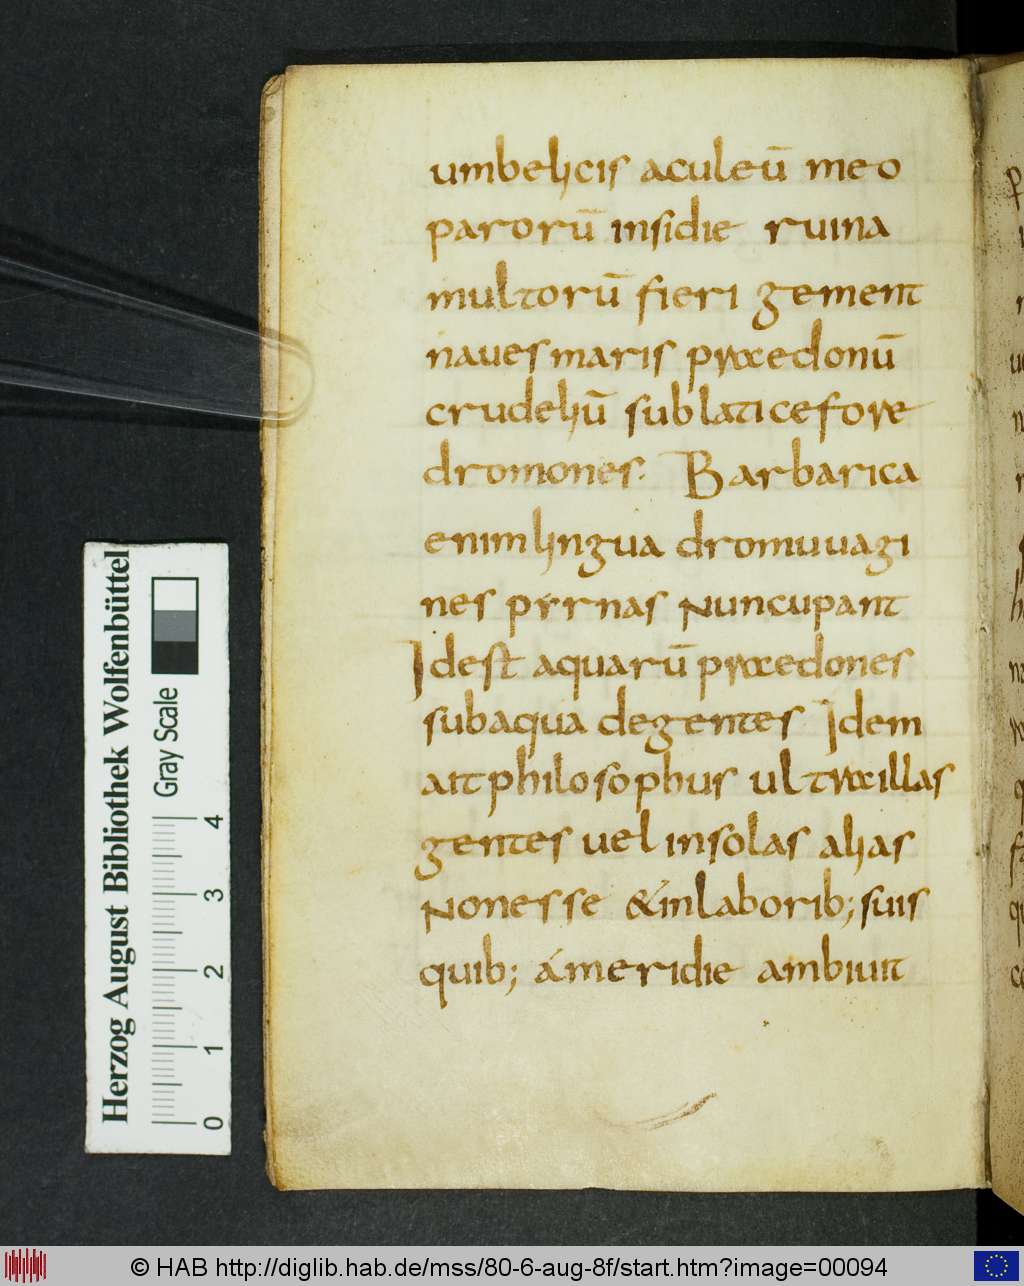 umbelicis aculeū meo
parorū insidie ruina
multorū fieri gement
naues maris praedonū
crudeliū sub latice fore
dromones. Barbarica
enim lingua dromu uagi
nes pyrnas nuncupant
Idest aquarū praedones
sub aqua degentes Idem
ait philosophus ultra illas
gentes uel insolas alias
non esse & in laborib; suis
quib; á meridie ambiuit
Herzog August Bibliothek Wolfenbüttel
Gray Scale
0 1 2 3 4
© HAB http://diglib.hab.de/mss/80-6-aug-8f/start.htm?image=00094